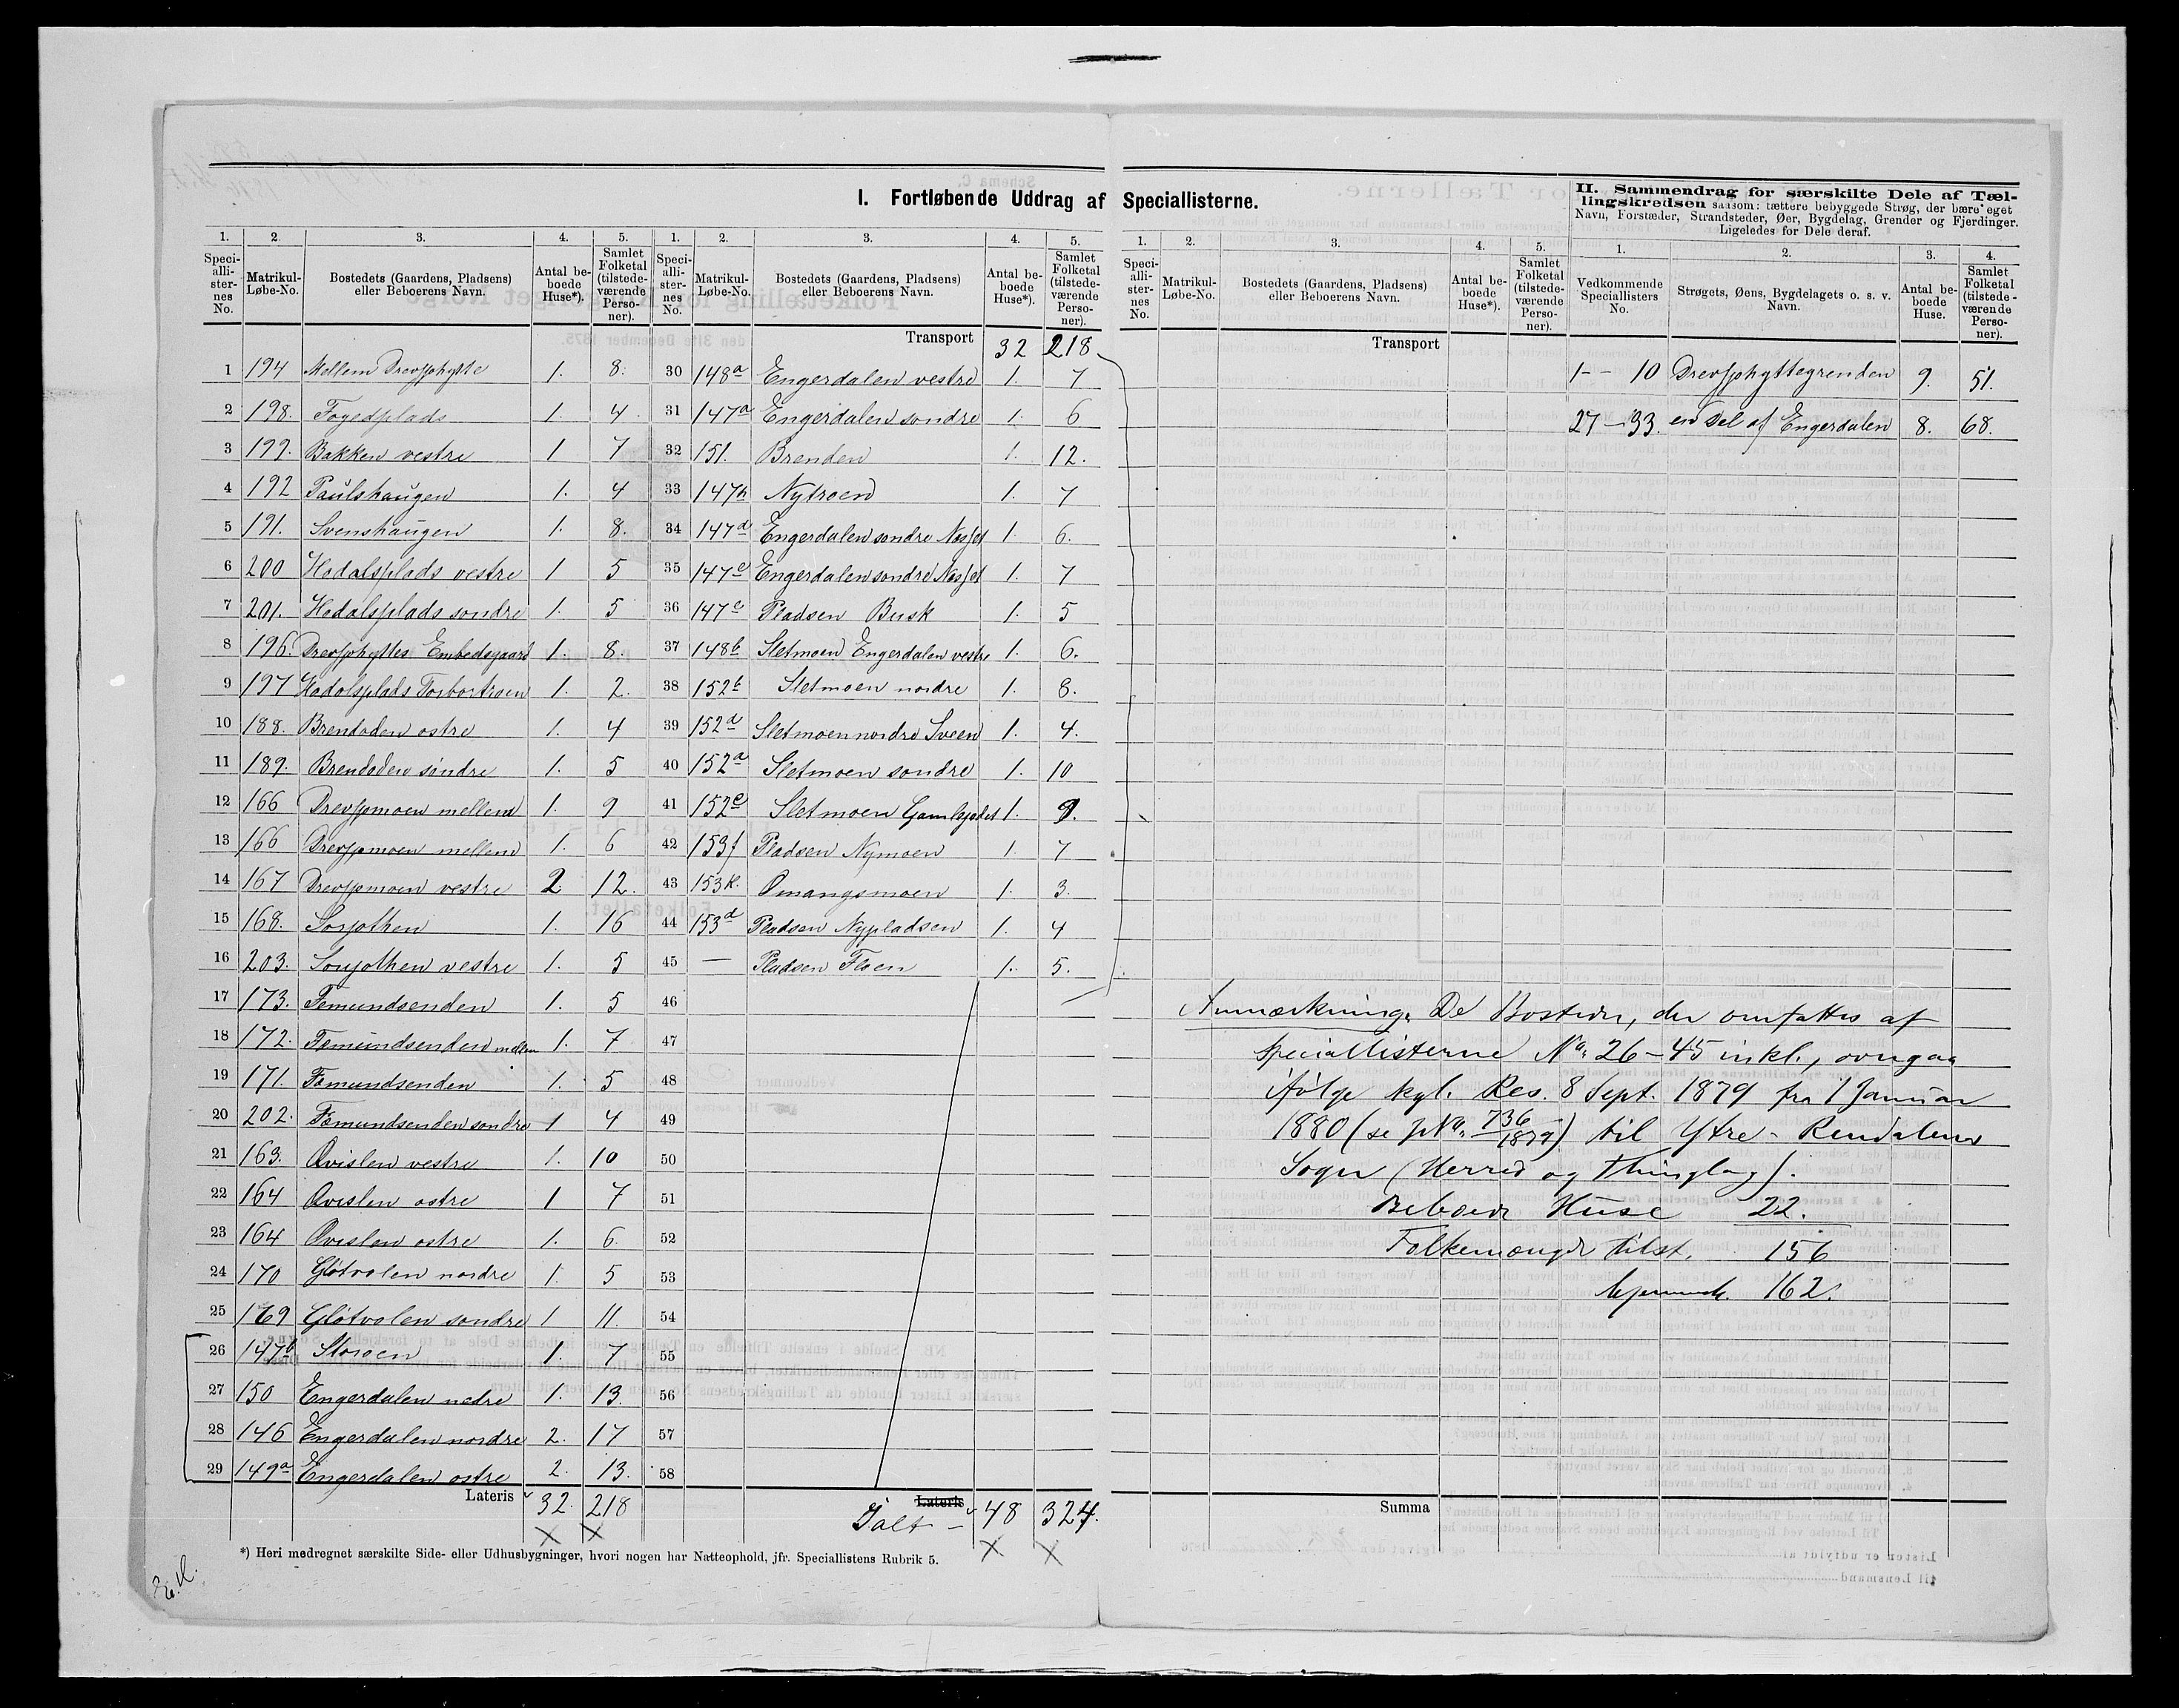 I. Fortløbende Uddrag af Speciallisterne.
II. Sammendrag for særskilte Dele af Tællingskredsen saasom: tættere bebyggede Strøg, der bære eget
Navn, Forstæder, Strandsteder, Øer, Bygdelag, Grender og Fjerdinger.
Ligeledes for Dele deraf.
1. 2. 3. 4. 5. 1. 2. 3. 4. 5. 1. 2. 3. 4. 5. 1. 2. 3. 4.
Speciallisternes No. Matrikul-Løbe-No. Bostedets (Gaardens, Pladsens) eller Beboerens Navn. Antal beboede Huse*). Samlet Folketal (tilstedeværende Personer).
Speciallisternes No. Matrikul-Løbe-No. Bostedets (Gaardens, Pladsens) eller Beboerens Navn. Antal beboede Huse*). Samlet Folketal (tilstedeværende Personer).
Speciallisternes No. Matrikul-Løbe-No. Bostedets (Gaardens, Pladsens) eller Beboerens Navn. Antal beboede Huse*). Samlet Folketal (tilstedeværende Personer).
Vedkommende Speciallisters No. Strøgets, Øens, Bygdelagets o. s. v. Navn. Antal beboede Huse. Samlet Folketal (tilstedeværende Personer).
1 194 Mellem Drevsjohytte 1. 8.
2 198. Fogedplads 1. 4
3 199. Bakken vestre 1 7
4 192 Paulshaugen 1. 4
5 191. Svenshaugen 1. 8.
6 200 Hodalsplads vestre 1 5
7 201. Hodalsplads sondre 1. 5
8 196. Drevsjohyttes Embedsgaard 1. 8.
9 197 Hodolsplads Torbortroen 1. 2.
10 188. Brendaden ostre 1. 4
11 189. Brendoden søndre 1. 5
12 166 Drevsjomoen mellem 1. 9
13 166 Drevsjomoen mellem 1. 6
14 167 Drevsjomoen vestre 2 12.
15 168. Sorjothen 1. 16
16 203. Sorjothen vestre 1. 5
17 173. Femundsenden 1. 5
18 172. Femundsenden mellem 1. 7
19 171. Fæmundsenden 1. 5
20 202. Fæmundsenden sondre 1 4
21 163. Qvislen vestre 1. 10
22 164 Qvislen ostre 1 7
23 164 Qvislen ostre 1. 6.
24 170 Gløtvolen nordre 1. 5
25 169 Gløtvolen sondre 1 11.
26 147b Storoen 1. 7
27 150 Engerdalen nedre 1. 13.
28 146 Engerdalen nordre 2. 17
29 149a Engerdalen ostre 2. 13.
Lateris 32. 218
Transport 32 218
30 148a Engerdalen vestre 1. 7
31 147a Engerdalen sondre 1. 6
32 151. Brenden 1. 12.
33 147h Nytroen 1. 7
34 147d Engerdalen sondre Næsset 1. 6.
35 147c Engerdalen sondre Næsset 1. 7
36 147e Pladsen Busk 1. 5
37 148b Sletmoen Engerdalen vestre 1. 6.
38 152b Sletmoen nordre 1. 8.
39 152d Sletmoen nordre Sveen 1. 4.
40 152a Sletmoen sondre 1. 10
41 152e Sletmoen Gamlejodet 1. 9.
42 153f Pladsen Nymoen 1. 7
43 153k. Omangsmoen 1. 3.
44 153d Pladsen Nypladsen 1. 4
45 — Pladsen Floen 1. 5.
46
47
48
49
50
51
52
53
54
55
56
57
58
Lateris
Ialt — 48 324.
Transport
1 - 10 Drevsjohyttegrenden 9. 51.
27 - 33. en Del af Engerdalen 8. 68.
Anmærkning: De Bosteder, der omfattes af
speciallisterne No. 26-45 inkl., overgaa
ifølge kgl. Res. 8 Sept. 1879 fra 1 Januar
1880 (se JNo. 736/1879) til Ytre-Rendalens
Sogn (Herred og Thinglag).
Beboede Huse 22.
Folkemængde tilst. 156
hjemmeh. 162.
Summa
*) Heri medregnet særskilte Side- eller Udhusbygninger, hvori nogen har Natteophold, jfr. Speciallistens Rubrik 5.